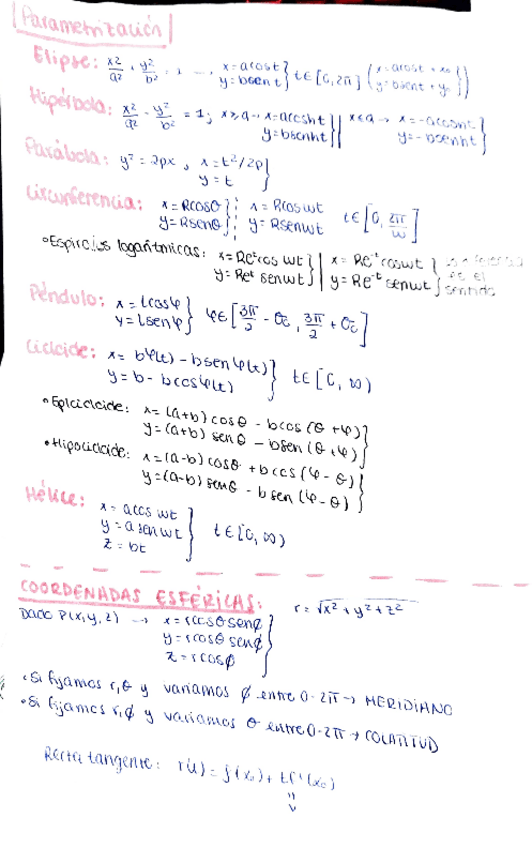 Parametrización
Elipse: x²/a² + y²/b² = 1 → x=acost y=bsent } t∈[0,2π] (x=acost + x₀ y=bsent + y₀)
Hipérbola: x²/a² - y²/b² = 1; x≥a → x=acosht y=bsenht || x≤a → x=-acosht y=-bsenht }
Parábola: y²=2px, x=t²/2p y=t }
Circunferencia: x=Rcosθ y=Rsenθ } x=Rcoswt y=Rsenwt t∈[0, 2π/w]
• Espirales logarítmicas: x=Reᵗcos wt y=Reᵗ senwt } | x=Re⁻ᵗcoswt y=Re⁻ᵗ senwt } se el sentido
Péndulo: x=lcosφ y=lsenφ } φ∈[3π/2 - θ₀, 3π/2 + θ₀]
Cicloide: x= bφ(t) - bsenφ(t) y= b - bcosφ(t) } t∈[0, ∞)
• Epicicloide: x=(a+b)cosθ - bcos(θ+φ) y=(a+b)senθ - bsen(θ+φ) }
• Hipocicloide: x=(a-b)cosθ + bcos(φ-θ) y=(a-b)senθ - bsen(φ-θ) }
Hélice: x=acos wt y=asenwt z=bt } t∈[0,∞)
COORDENADAS ESFÉRICAS: r=√x²+y²+z²
Dado P(x,y,z) → x=rcosθsenϕ y=rcosθsenϕ z=rcosϕ }
• Si fijamos r,θ y variamos ϕ entre 0-2π → MERIDIANO
• Si fijamos r,ϕ y variamos θ entre 0-2π → COLATITUD
Recta tangente: r(t) = f(x₀) + tf'(x₀)
"
v